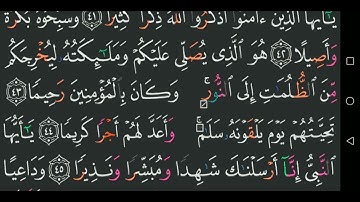 يَٰٓأَيُّهَا ٱلَّذِينَ ءَامَنُوا۟ ٱذْكُرُوا۟ ٱللَّهَ ذِكْرًا كَثِيرًا ٤١ وَسَبِّحُوهُ بُكْرَةً
وَأَصِيلًا ٤٢ هُوَ ٱلَّذِى يُصَلِّى عَلَيْكُمْ وَمَلَٰٓئِكَتُهُۥ لِيُخْرِجَكُم
مِّنَ ٱلظُّلُمَٰتِ إِلَى ٱلنُّورِ ۚ وَكَانَ بِٱلْمُؤْمِنِينَ رَحِيمًا ٤٣
تَحِيَّتُهُمْ يَوْمَ يَلْقَوْنَهُۥ سَلَٰمٌ ۚ وَأَعَدَّ لَهُمْ أَجْرًا كَرِيمًا ٤٤ يَٰٓأَيُّهَا
ٱلنَّبِىُّ إِنَّآ أَرْسَلْنَٰكَ شَٰهِدًا وَمُبَشِّرًا وَنَذِيرًا ٤٥ وَدَاعِيًا